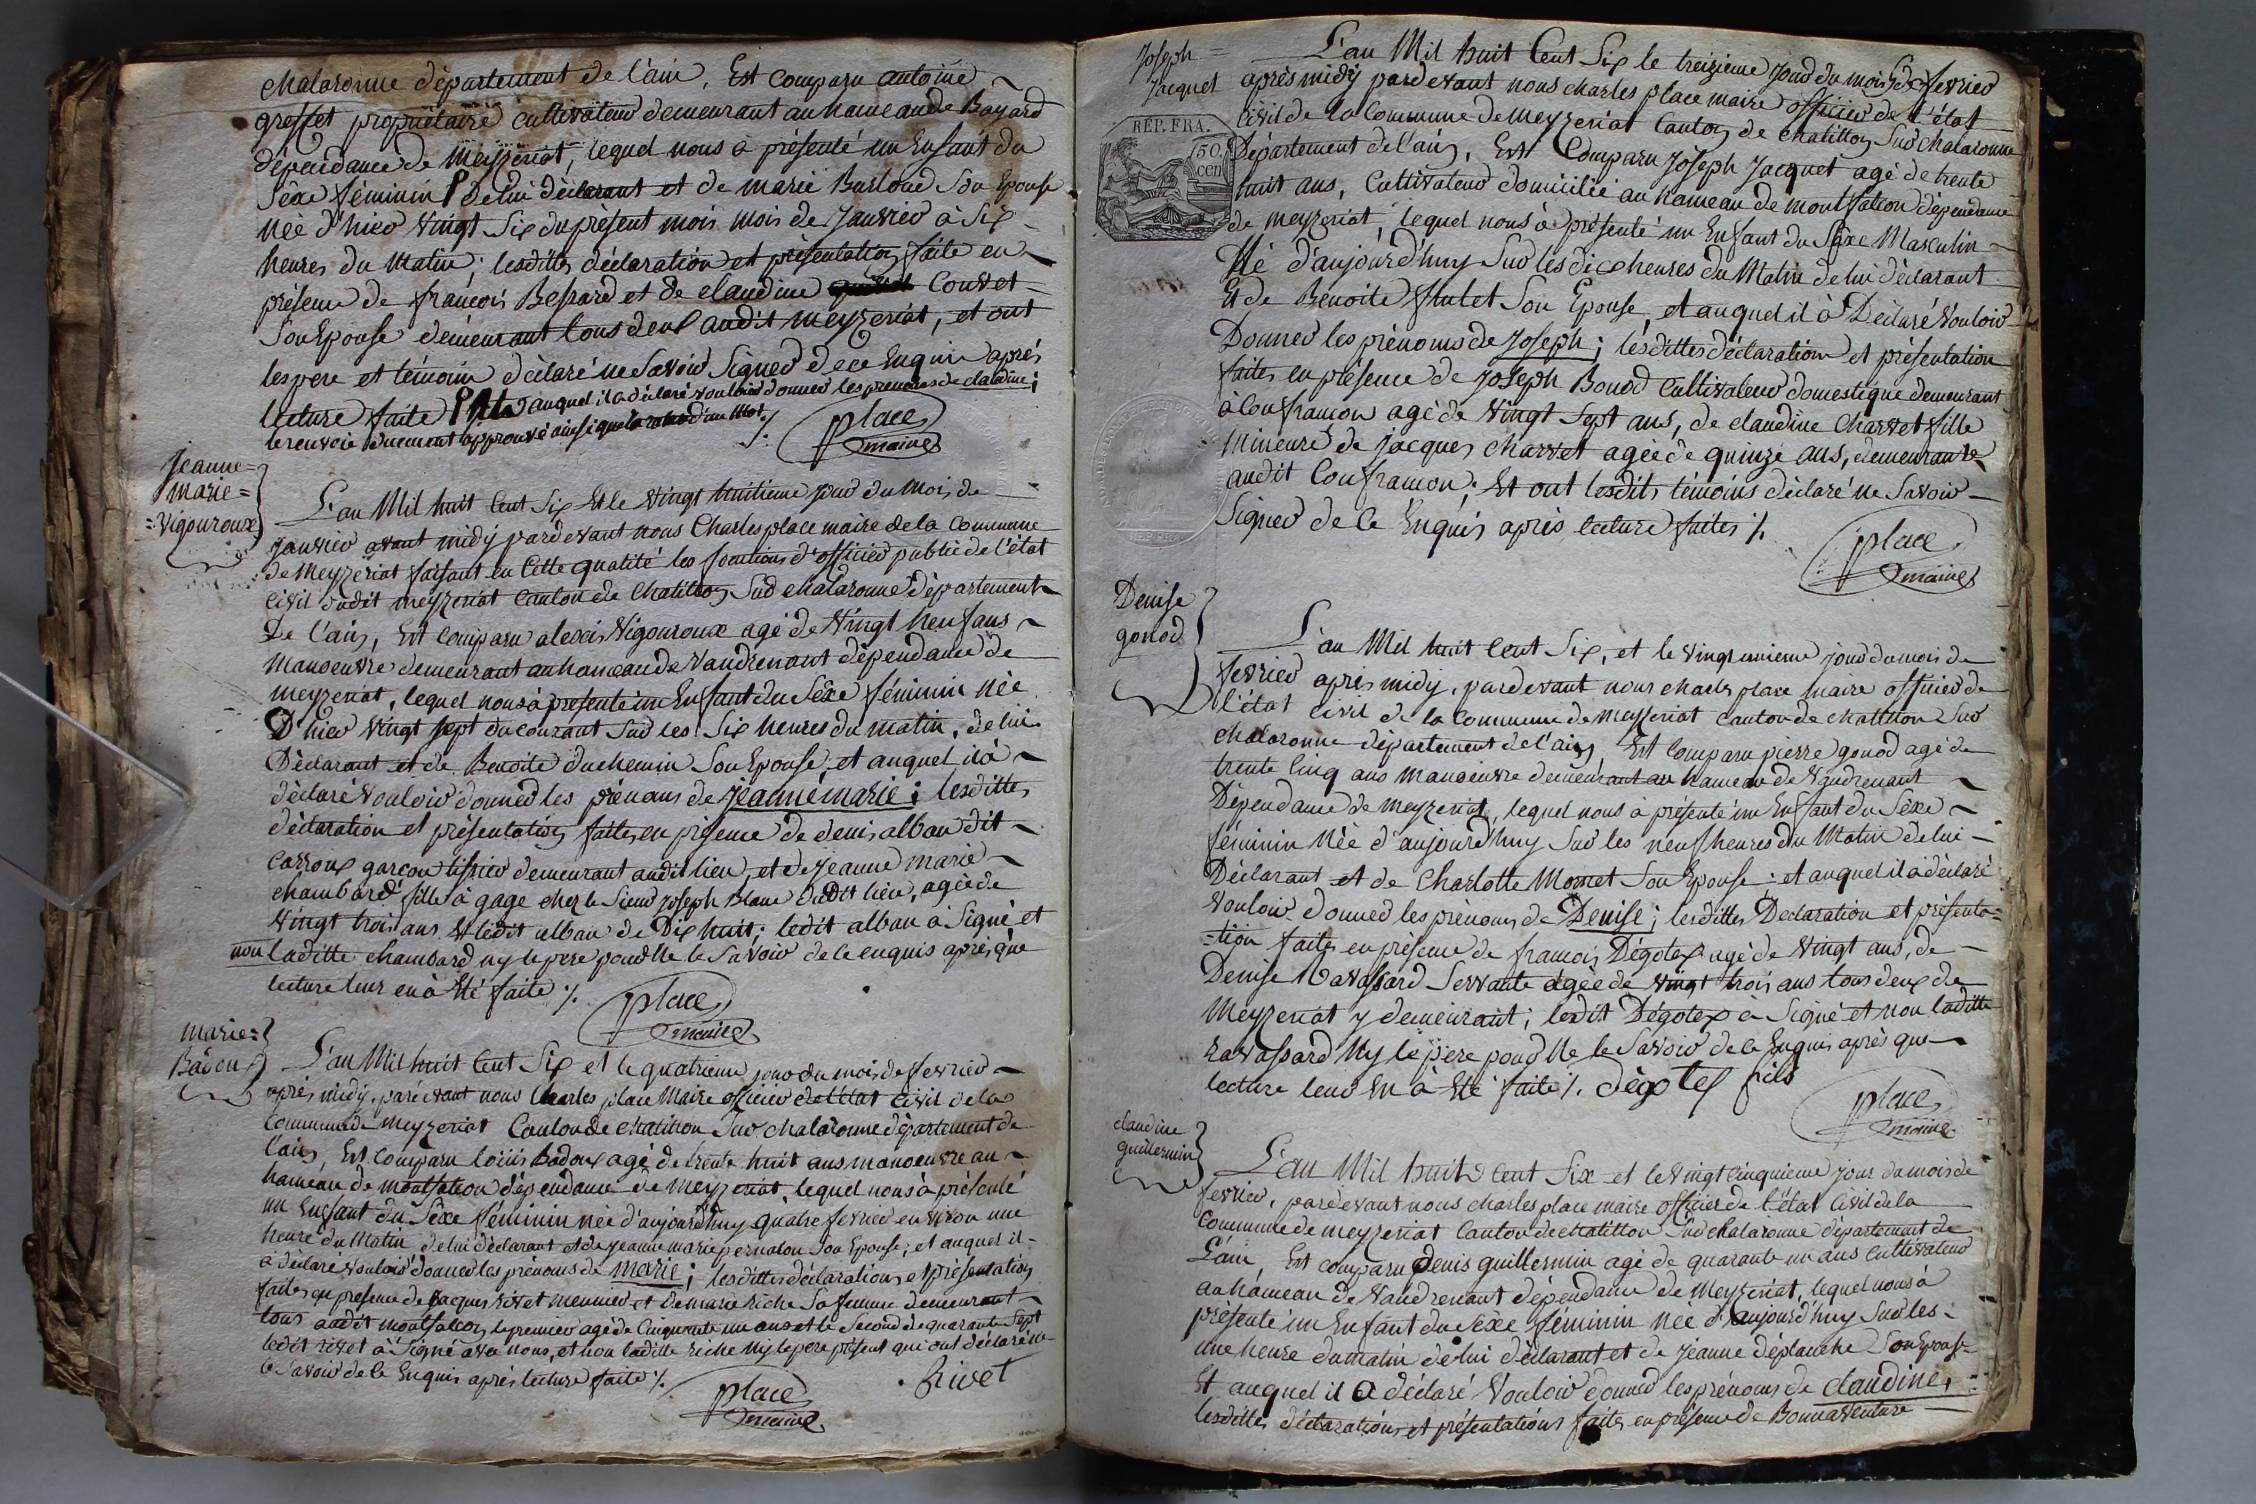 chalaronne département de l'ain, Est comparu antoine
greffet propriétaire cultivateur demeurant au hameau de Bayard
dépendance de Meyzeriat, lequel nous à présenté un Enfant du
Sèxe féminin de lui déclarant et de marie Burloud Son Epouse
Née d'hier vingt Six du présent mois mois de Janvier à Six
heures du Matin; lesdittes déclaration et présentation faite en
présence de françois Bessard et de claudine Convet
Son Epouse demeurant tous deux audit meyzeriat, et ont
les pere et témoin déclaré ne Savoir Signer de ce Enquis après
lecture faite auquel il a déclaré vouloir donner les prénoms de claudine;
le renvoie duement approuvé ainsi que la rature d'un Mot ./.
place
maire
Jeanne =
marie =
= Vigouroux
L'an Mil huit Cent Six Et le vingt huitieme jour du Mois de
janvier avant midy pardevant nous Charles place maire de la Commune
de Meyzeriat faisant en Cette qualité les fonctions d'officier public de l'état
Civil dudit meyzeriat Canton de Chatillon Sur chalaronne département
De l'ain, Est Comparu alexis Vigouroux agé de Vingt Neuf ans
Manoeuvre demeurant au hameau de Vaudrenant dépendance de
meyzeriat, lequel nous à présenté un Enfant du Sèxe féminin Née
D'hier Vingt Sept du courant Sur les Six heures du matin, de lui
Déclarant et de Benoite duchemin Son Epouse, et auquel il à
déclaré Vouloir donner les prénoms de Jeanne marie; lesdittes
déclaration et présentation faites en présence de denis alban dit
Carroux garçon tissier demeurant audit lieu, et de Jeanne marie
chambard fille à gage chez le Sieur Joseph Blanc dudit lieu, agée de
vingt trois ans Et ledit alban de Dix huit; ledit alban à Signé et
non laditte chambard ny le pere pour Ne le Savoir de ce enquis après que
lecture leur en à Eté faite ./.
place
maire
marie =
Badoux
L'an Mil huit Cent Six et le quatrieme jour du mois de fevrier
après midy, pardevant nous Charles place Maire officier de l'état Civil de la
Commune de meyzeriat Canton de Chatillon Sur Chalaronne département de
l'ain, Est Comparu louis Badoux agé de trente huit ans manoeuvre au
hameau de montfalcon dépendance de Meyzeriat, lequel nous à présenté
un Enfant du Sèxe féminin née d'aujourd'huy quatre fevrier environ une
heure du Matin de lui déclarant et de jeanne marie pernaton Son Epouse; et auquel il
à déclaré vouloir donner les prénoms de marie; lesdittes déclarations et présentation
faites en présence de Jacques rivet meunier et de marie Riche Sa femme demeurant
tous audit montfalcon, le premier agé de Cinquante un ans et le Second de quarante Sept
ledit rivet à Signé avec nous, et non laditte riche Ny le pere présent qui ont déclaré ne
le Savoir de ce Enquis après lecture faite ./.
Rivet
place
maire
Joseph =
Jacquet
L'an Mil huit Cent Six le treizieme jour du mois de fevrier
après midy pardevant nous charles place maire officier de l'état
Civil de la Commune de Meyzeriat Canton de Chatillon Sur Chalaronne
REP. FRA.
50.
cen
Département de l'ain, Est Comparu Joseph Jacquet agé de trente
huit ans, Cultivateur domicilié au hameau de montfalcon dépendance
de meyzeriat, lequel nous à présenté un Enfant du Sèxe Masculin
Né d'aujourd'huy Sur les dix heures du Matin de lui déclarant
Et de Benoite Son Epouse, et auquel il à Déclaré Vouloir
Donner les prénoms de Joseph; lesdittes déclaration et présentation
faites en présence de Joseph Bonod Cultivateur domestique demeurant
à Confrancon agé de vingt Sept ans, de claudine Charvet fille
Mineure de jacques charvet agée de quinze ans, demeurante
audit Confrancon; Et ont lesdits témoins déclaré ne Savoir
Signer de Ce Enquis après lecture faites ./.
place
maire
Denise
gonod
L'an Mil huit Cent Six, et le vingt unieme jour du mois de
fevrier après midy, pardevant nous charles place maire officier de
l'état Civil de la Commune de Meyzeriat Canton de Chatillon Sur
Chalaronne département de l'ain Est Comparu pierre gonod agé de
trente Cinq ans manoeuvre demeurant au hameau de Vaudrenant
Dépendance de Meyzeriat, lequel nous à présenté un Enfant du Sèxe
féminin Née d'aujourd'huy Sur les neuf heures du Matin de lui
Déclarant et de Charlotte Mornet Son Epouse; et auquel il à déclaré
Vouloir donner les prénoms de Denise; lesdittes Declaration et présenta=
=tion faites en présence de françois Dégotex agé de Vingt ans, de
Denise Ravassard Servante agée de vingt trois ans tous deux de
Meyzeriat y demeurant; ledit Dégotex à Signé et non laditte
ravassard Ny le pere pour Ne le Savoir de ce Enquis après que
lecture leur En à Eté faite ./. dégotex fils
place
maire
claudine
guillermin
L'an Mil huit Cent Six et le Vingt Cinquieme jour du mois de
fevrier, pardevant nous charles place maire officier de l'état Civil de la
Commune de meyzeriat Canton de Chatillon Sur Chalaronne département de
L'ain, Est Comparu Denis guillermin agé de quarante un ans Cultivateur
au hameau de Vaudrenant dépendance de Meyzeriat, lequel nous à
présenté un Enfant du Sèxe féminin née d'aujourd'huy Sur les
une heure du matin de lui déclarant et de Jeanne déplanche Son Epouse
Et auquel il a déclaré Vouloir donner les prénoms de claudine,
lesdittes déclarations et présentations faites en présence de Bonnaventure